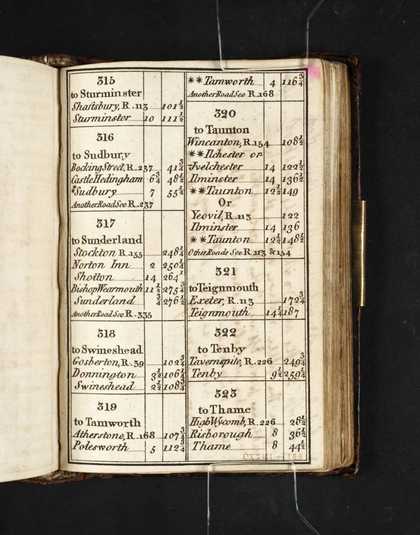 315
to Sturminster
Shaftsbury, R. 113 101½
Sturminster 10 111½
316
to Sudbury
Bocking Street, R. 237 41¾
Castle Hedingham 6¾ 48½
*Sudbury 7 55½
Another Road See R. 237
317
to Sunderland
Stockton R. 155 248¼
Norton Inn 2 250¼
Shotton 14 264¼
Bishop Wearmouth 11 275
Sunderland 276
Another Road See R. 335
318
to Swineshead
Gosberton, R. 39 102
Donnington 106
Swineshead 108
319
to Tamworth
Atherstone, R. 168 107
Polesworth 5 112
**Tamworth 4 116¾
Another Road See R. 168
320
to Taunton
Wincanton, R. 154 108½
**Ilchester or
Ivelchester 14 122½
Ilminster 14 136½
**Taunton 12½ 149
Or
Yeovil, R. 113 122
Ilminster 14 136
**Taunton 12½ 148½
Other Roads See R. 113 & 154
321
to Teignmouth
Exeter, R. 113 172¾
Teignmouth 14¼ 187
322
to Tenby
Tavernspite, R. 226 249
Tenby 250
323
to Thame
High Wycomb, R. 226 28½
Risborough 8 36½
Thame 8 44½